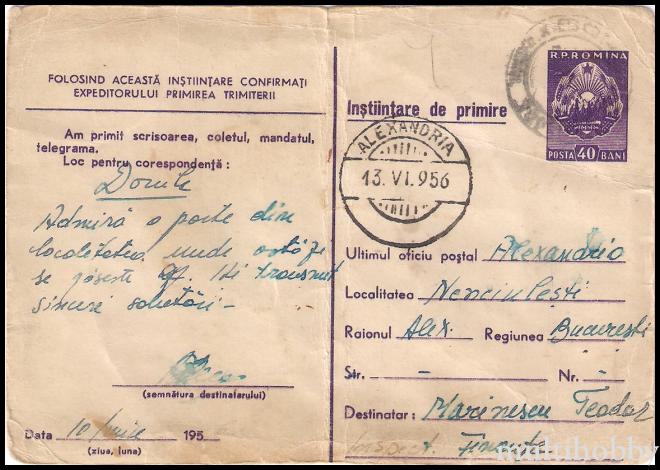 FOLOSIND ACEASTĂ INȘTIINȚARE CONFIRMAȚI
EXPEDITORULUI PRIMIREA TRIMITERII
Am primit scrisoarea, coletul, mandatul,
telegrama.
Loc pentru corespondență :
Domle
Admiră o parte din
localitatea unde astăzi
se găsește Iți transmit
sincere salutări -
(semnătura destinatarului)
Data 10 Iunie 195
(ziua, luna)
R.P.ROMINA
POSTA 40 BANI
Inștiințare de primire
ALEXANDRIA
13.VI.956
Ultimul oficiu poștal Alexandria
Localitatea Nenciulești
Raionul Alex. Regiunea București
Str. - Nr. -
Destinatar : Marinescu Teodor
Inspect. Finante
multihobby